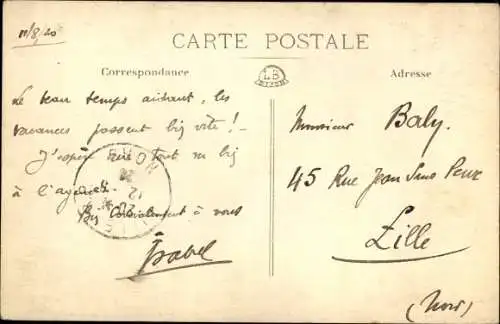 11/8/20
CARTE POSTALE
Correspondance
LB
DIJON
Adresse
Le beau temps aidant, les
vacances passent big vite! -
J'espère que tout va big
à l'agence.
Big Cordialement à vous
Isabel
NORD
12
LILLE
Monsieur Baly.
45 Rue Jean Sans Peur
Lille
(Nord)